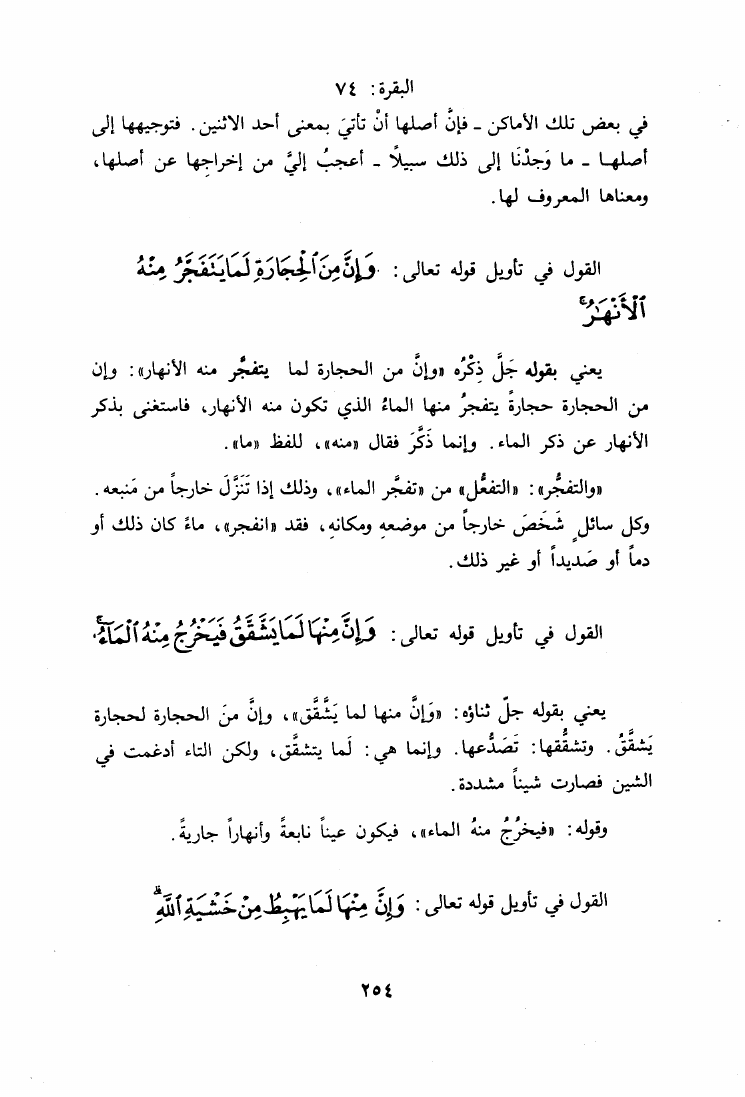 البقرة: ٧٤
في بعض تلك الأماكن - فإنَّ أصلها أنْ تأتيَ بمعنى أحد الاثنين. فتوجيهها إلى
أصلها - ما وَجدْنَا إلى ذلك سبيلًا - أعجبُ إليَّ من إخراجِها عن أصلها،
ومعناها المعروف لها.
القول في تأويل قوله تعالى: وَإِنَّ مِنَ ٱلْحِجَارَةِ لَمَا يَتَفَجَّرُ مِنْهُ
ٱلْأَنْهَٰرُۚ
يعني بقوله جَلَّ ذِكْرُه «وإنَّ من الحجارة لما يتفجَّر منه الأنهار»: وإن
من الحجارة حجارةً يتفجرُ منها الماءُ الذي تكون منه الأنهار، فاستغنى بذكر
الأنهار عن ذكر الماء. وإنما ذَكَّرَ فقال «منه»، للفظ «ما».
«والتفجُّر»: «التفعُّل» من «تفجَّر الماء»، وذلك إذا تَنَزَّلَ خارجاً من مَنبعه.
وكل سائلٍ شَخَصَ خارجاً من موضعهِ ومكانهِ، فقد «انفجر»، ماءً كان ذلك أو
دماً أو صَديداً أو غير ذلك.
القول في تأويل قوله تعالى: وَإِنَّ مِنْهَا لَمَا يَشَّقَّقُ فَيَخْرُجُ مِنْهُ ٱلْمَآءُۚ
يعني بقوله جلّ ثناؤه: «وَإنَّ منها لما يَشَّقَّق»، وإنَّ منَ الحجارة لحجارة
يَشقَّقُ. وتشقُّقها: تَصَدُّعها. وإنما هي: لَما يتشقَّق، ولكن التاء أدغمت في
الشين فصارت شيناً مشددة.
وقوله: «فيخرُجُ منهُ الماء»، فيكون عيناً نابعةً وأنهاراً جاريةً.
القول في تأويل قوله تعالى: وَإِنَّ مِنْهَا لَمَا يَهْبِطُ مِنْ خَشْيَةِ ٱللَّهِۗ
٢٥٤